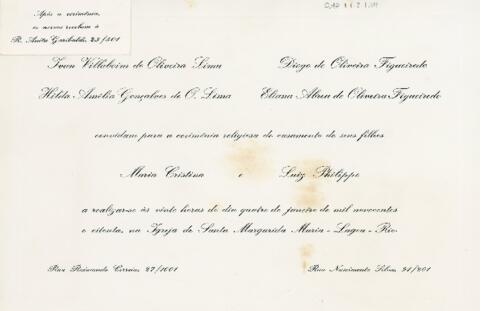 Após a cerimônia,
os noivos recebem à
R. Anita Garibaldi, 23/501
Ivan Villaboim de Oliveira Lima
Diogo de Oliveira Figueiredo
Hilda Amélia Gonçalves de O. Lima
Eliana Abreu de Oliveira Figueiredo
convidam para a cerimônia religiosa do casamento de seus filhos
Maria Cristina e Luiz Philippe
a realizar-se às vinte horas do dia quatro de janeiro de mil novecentos
e oitenta, na Igreja de Santa Margarida Maria - Lagoa - Rio
Rua Raimundo Correia 27/1001
Rua Nascimento Silva, /201